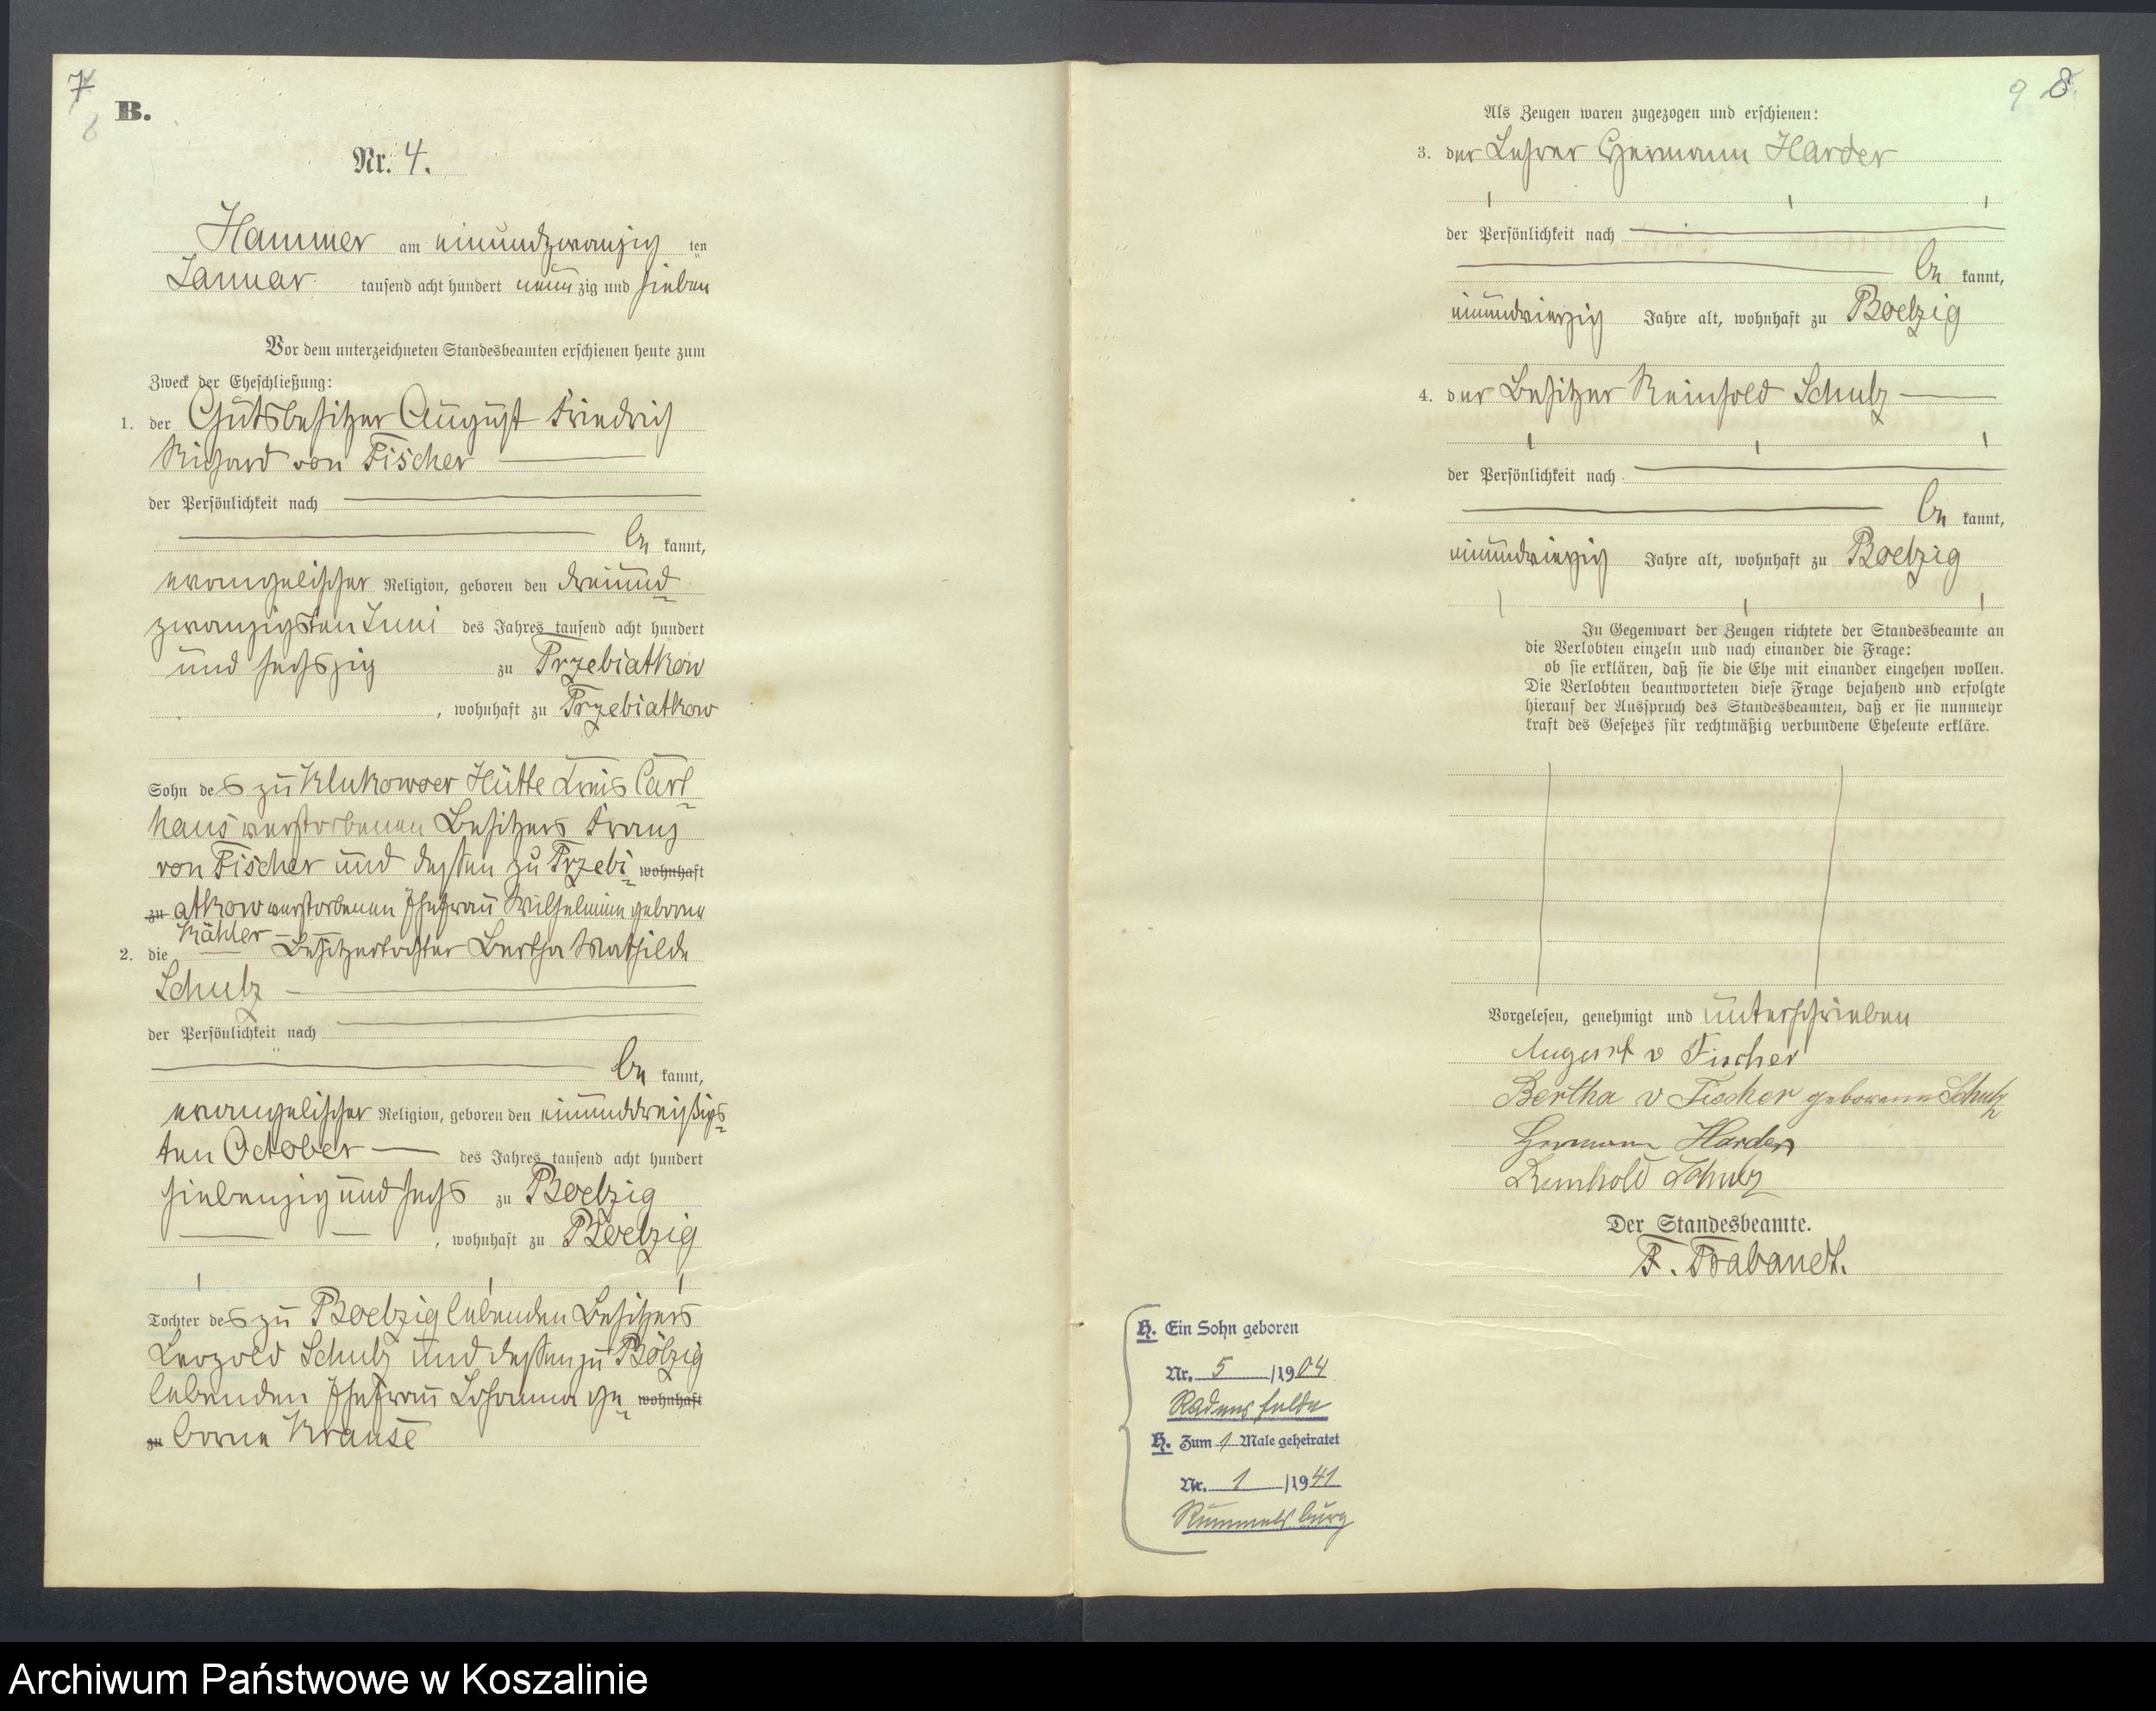 7
6
B.
Nr. 4.
Hammer am einundzwanzig ten
Januar tausend acht hundert neun zig und sieben
Vor dem unterzeichneten Standesbeamten erschienen heute zum
Zweck der Eheschließung:
1. der Gutsbesitzer August Friedrich
Richard von Fischer
der Persönlichkeit nach
be kannt,
evangelischer Religion, geboren den dreiund
zwanzigsten Juni des Jahres tausend acht hundert
und sechszig zu Przebiatkow
, wohnhaft zu Przebiatkow
Sohn des zu Klukowoer Hütte Kreis Cart
haus verstorbenen Besitzers Franz
von Fischer und dessen zu Przebi wohnhaft
zu atkow verstorbenen Ehefrau Wilhelmine geborne
Kähler
2. die Besitzertochter Bertha Mathilde
Schulz
der Persönlichkeit nach
be kannt,
evangelischer Religion, geboren den einunddreißigs
ten October des Jahres tausend acht hundert
siebenzig und sechs zu Boelzig
, wohnhaft zu Boelzig
Tochter des zu Boelzig lebenden Besitzers
Leopold Schulz und dessen zu Bölzig
lebenden Ehefrau Johanna ge wohnhaft
zu borne Krause
9 8
Als Zeugen waren zugezogen und erschienen:
3. der Lehrer Hermann Harder
der Persönlichkeit nach
be kannt,
einundvierzig Jahre alt, wohnhaft zu Boelzig
4. der Besitzer Reinhold Schulz
der Persönlichkeit nach
be kannt,
einundvierzig Jahre alt, wohnhaft zu Boelzig
In Gegenwart der Zeugen richtete der Standesbeamte an
die Verlobten einzeln und nach einander die Frage:
ob sie erklären, daß sie die Ehe mit einander eingehen wollen.
Die Verlobten beantworteten diese Frage bejahend und erfolgte
hierauf der Ausspruch des Standesbeamten, daß er sie nunmehr
kraft des Gesetzes für rechtmäßig verbundene Eheleute erkläre.
Vorgelesen, genehmigt und unterschrieben
August v Fischer
Bertha v Fischer geborene Schulz
Hermann Harder
Reinhold Schulz
Der Standesbeamte.
F. Brabandt.
H. Ein Sohn geboren
Nr. 5 /1904
Radensfelde
H. Zum 1 Male geheiratet
Nr. 1 /1941
Rummelsburg
Archiwum Państwowe w Koszalinie